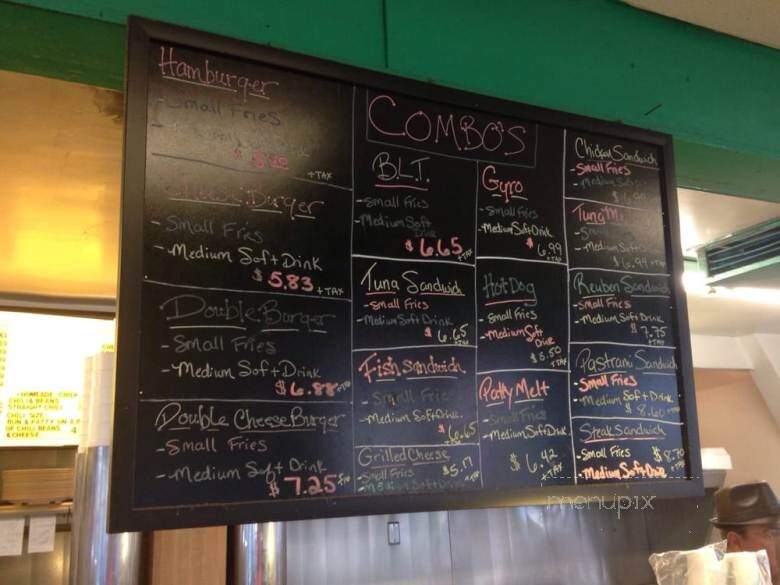 Hamburger
- Small Fries
$ 5.50
+TAX
Cheese Burger
- Small Fries
- Medium Soft Drink
$ 5.83 +TAX
Double Burger
- Small Fries
- Medium Soft Drink
$ 6.88 +TAX
Double Cheese Burger
- Small Fries
- Medium Soft Drink
$ 7.25 +TAX
COMBO'S
B.L.T.
- Small Fries
- Medium Soft
Drink
$ 6.65
+TAX
Tuna Sandwich
- Small Fries
- Medium Soft Drink
$ 6.65
+TAX
Fish Sandwich
- Small Frie
- Medium Soft Drink
$ 6.65
+TAX
Grilled Cheese
- Small Fries
$5.17
+TAX
Soft Drink
Gyro
- Small Fries
- Medium Soft Drink
$ 6.99
+TAX
Hot Dog
- Small Fries
- Medium Soft
Drink
$5.50
+TAX
Patty Melt
- Small Fries
- Medium Soft Drink
$ 6.42
+TAX
Chicken Sandwich
- Small Fries
- Medium
Tuna Me
- Small
- Medium Soft
$6.99 +TAX
Reuben Sandwich
- Small Fries
- Medium Soft Drink
$ 7.75
+TAX
Pastrami Sandwich
- Small Fries
- Medium Soft Drink
$ 8.60 +TAX
Steak Sandwich
- Small Fries
$8.70
+TAX
- Medium Soft Drink
CHILI & BEANS
STRAIGHT CHILI
CHILI SIZE
BUN & PATTY
OF CHILI BEANS
& CHEESE
menupix